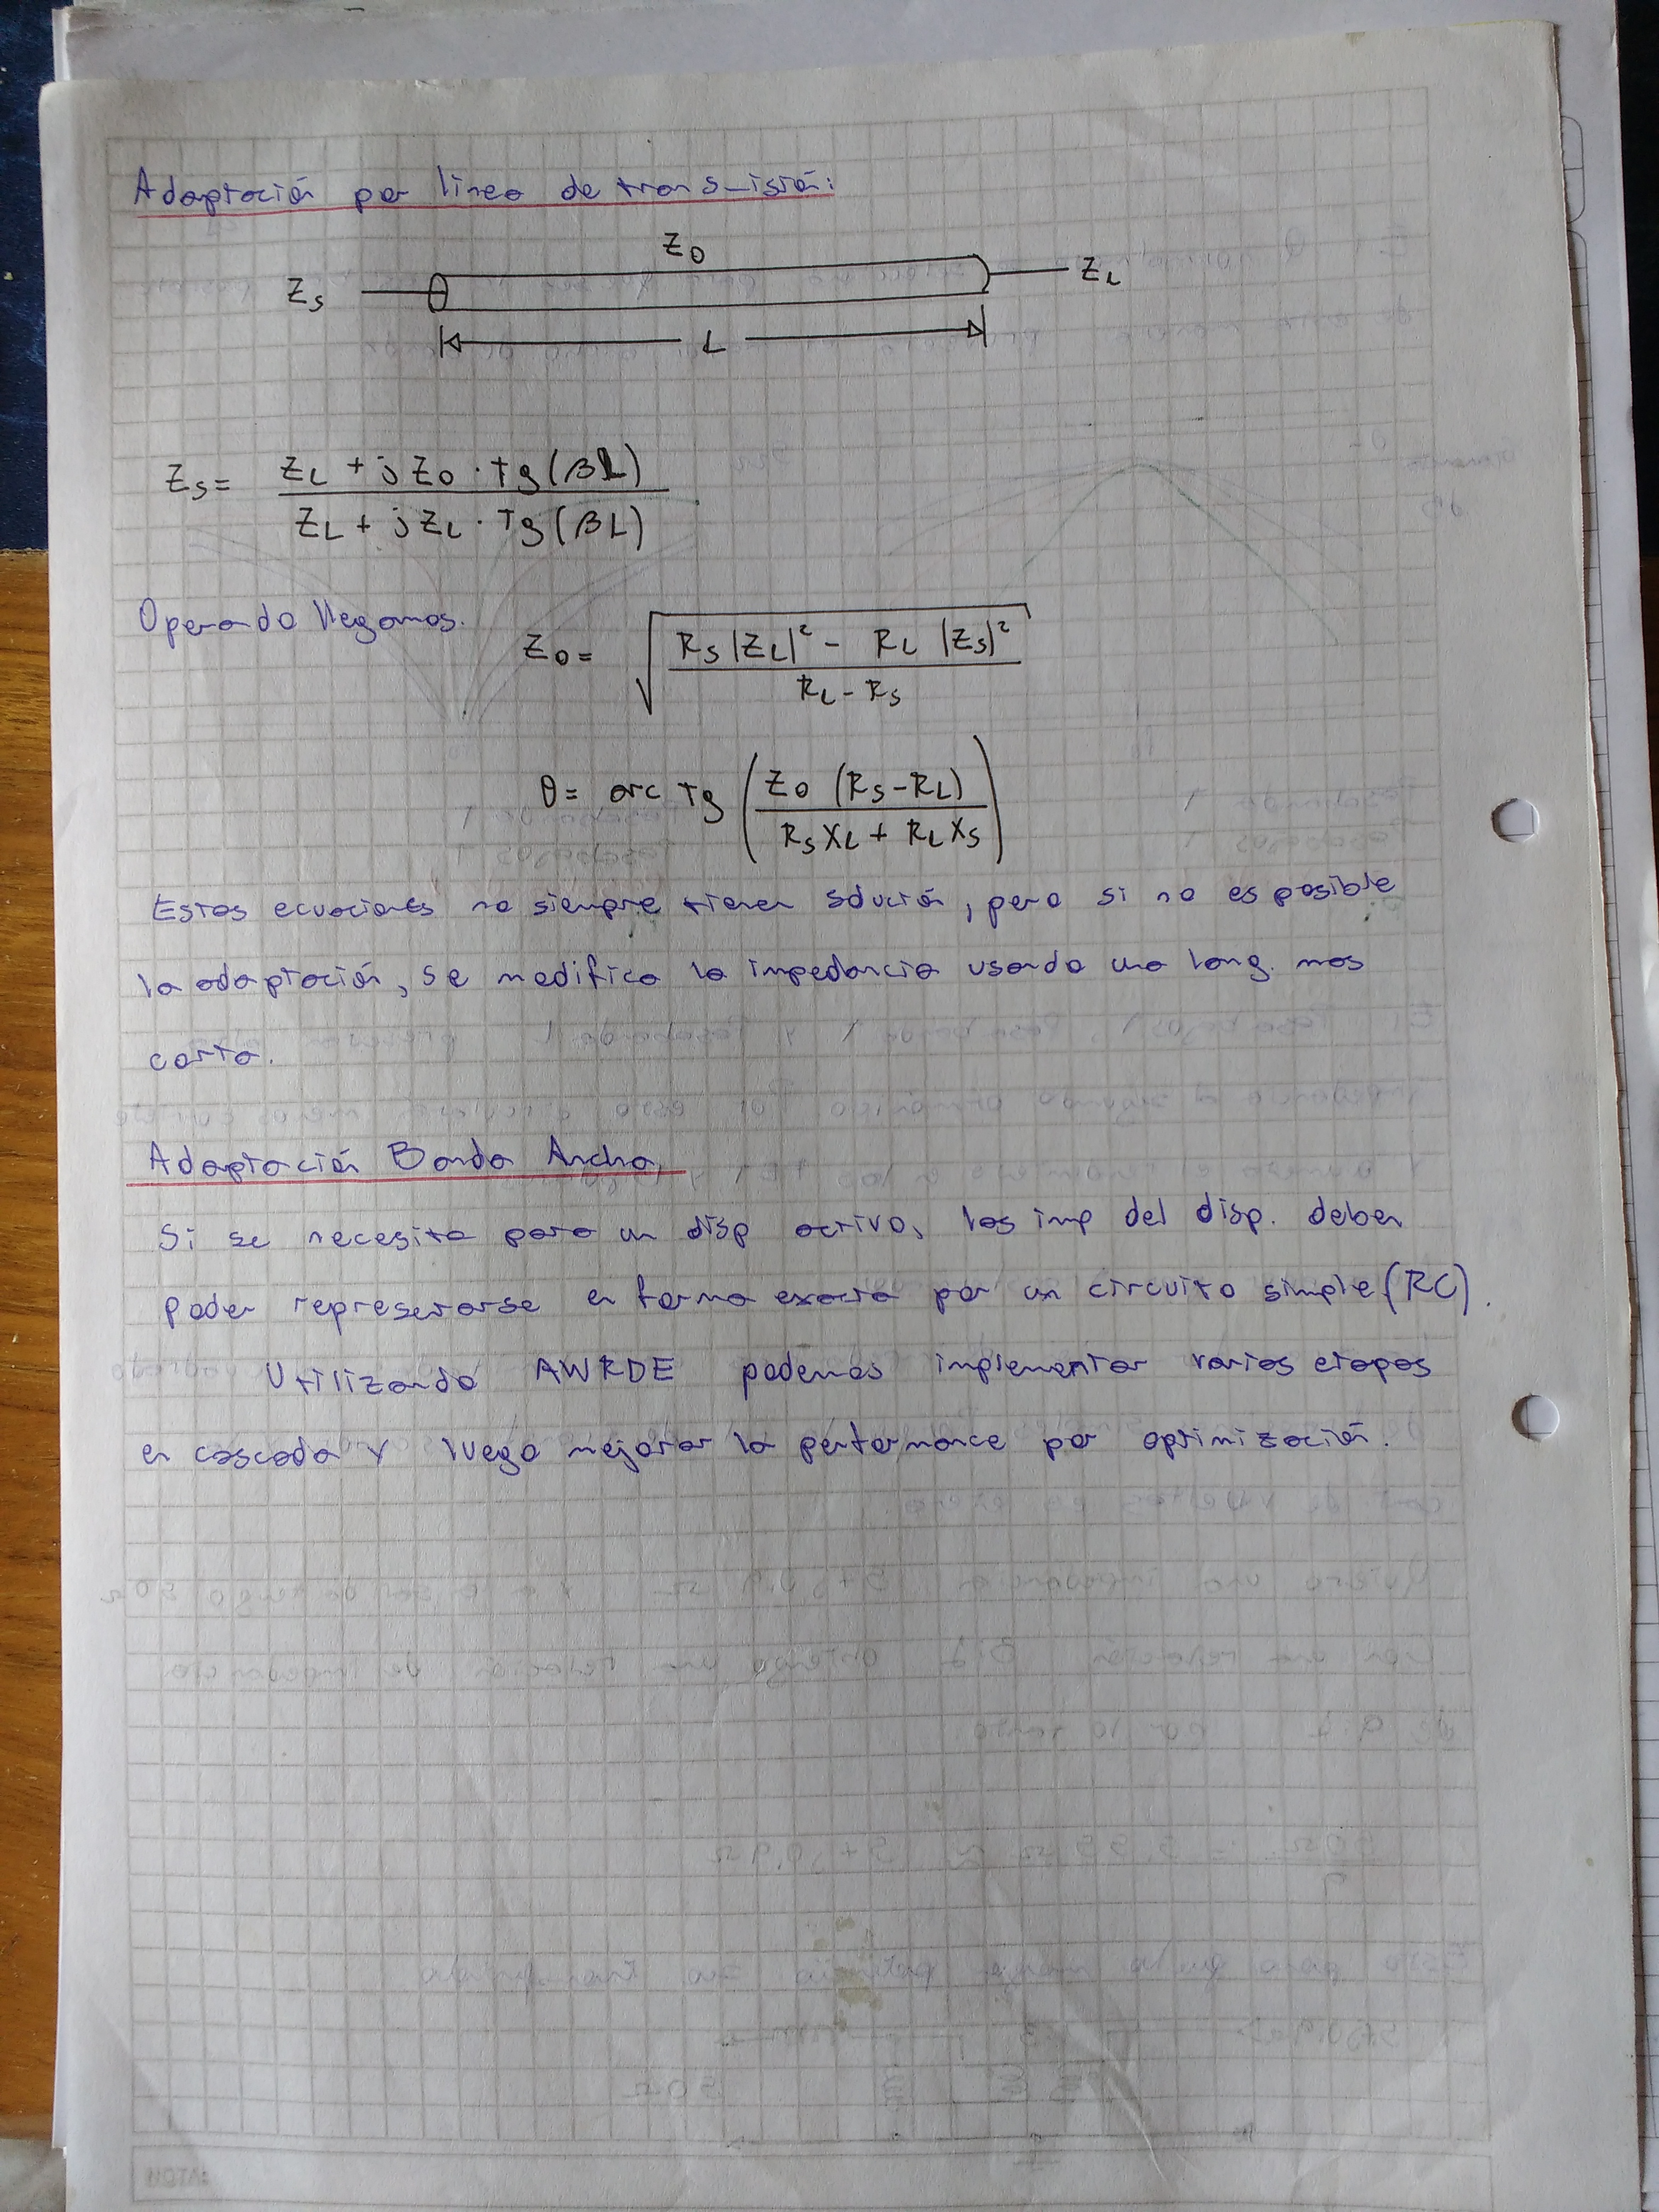 Adaptación por linea de transmisión:
Z0
Zs
ZL
L
Zs = (ZL + j Z0 · Tg(βL)) / (ZL + j ZL · Tg(βL))
Operando llegamos.
Z0 = √((Rs |ZL|² - RL |Zs|²) / (RL - Rs))
θ = arc Tg (Z0 (Rs - RL) / (Rs XL + RL Xs))
Estas ecuaciones no siempre tienen solución, pero si no es posible
la adaptación, se modifica la impedancia usando una long. mas
corta.
Adaptación Banda Ancha
Si se necesita para un disp activo, las imp del disp. deben
poder representarse en forma exacta por un circuito simple (RC).
Utilizando AWRDE podemos implementar varias etapas
en cascada y luego mejorar la performance por optimización.